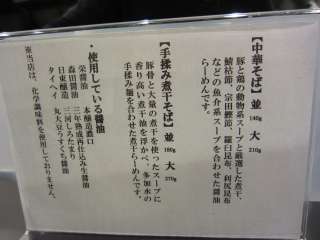 【中華そば】並 140g 大 210g
豚と鶏の動物系スープと厳選した煮干、
鯖枯節、宗田鰹節、羅臼昆布、利尻昆布
などの魚介系スープを合わせた醤油
らーめんです。
【手揉み煮干そば】並 180g 大 270g
豚骨と大量の煮干を使ったスープに
香り高い煮干油を浮かべ、多加水の
手揉み麺を合わせた煮干らーめんです。
・使用している醤油
栄醤油 本醸造濃口
森田醤油 三年熟成再仕込み生醤油
日東醸造 三河しろたまり
タイヘイ 丸大豆うすくち醤油
※当店は、化学調味料を使用しておりません。